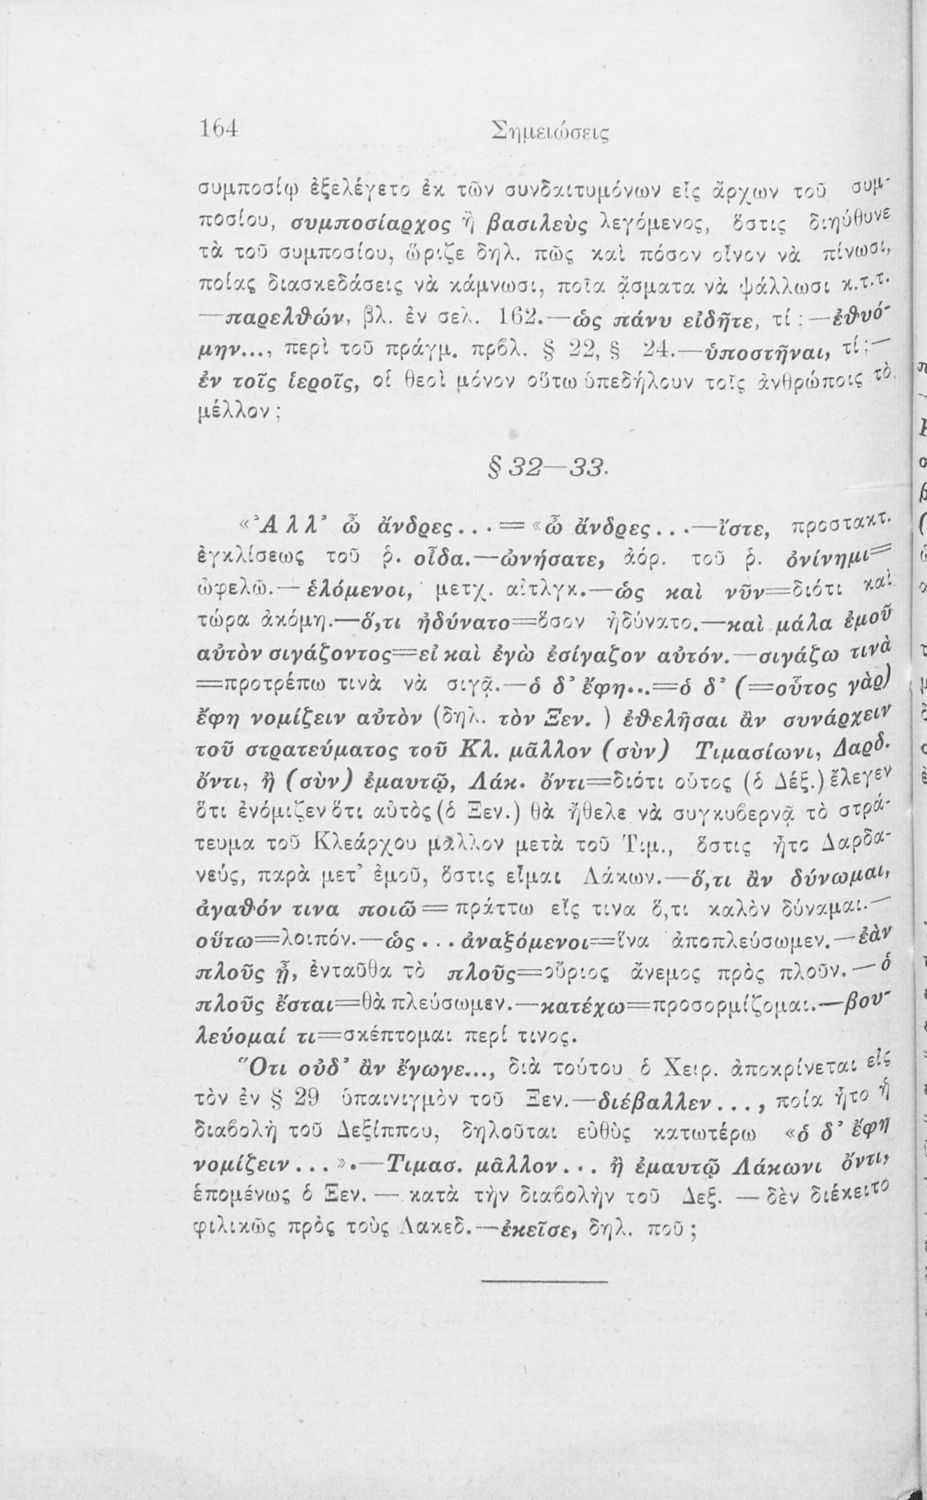 164 Σημειώσεις
συμποσίῳ ἐξελέγετο ἐκ τῶν συνδαιτυμόνων εἷς ἄρχων τοῦ συμ-
ποσίου, συμποσίαρχος ἢ βασιλεὺς λεγόμενος, ὅστις διηύθυνε
τὰ τοῦ συμποσίου, ὥριζε δηλ. πῶς καὶ πόσον οἶνον νὰ πίνωσι,
ποίας διασκεδάσεις νὰ κάμνωσι, ποῖα ᾄσματα νὰ ψάλλωσι κ.τ.τ.
—παρελθών, βλ. ἐν σελ. 162.—ὡς πάνυ εἰδῆτε, τί ;—ἐθυό-
μην..., περὶ τοῦ πράγμ. πρβλ. § 22, § 24.—ὑποστῆναι, τί ;—
ἐν τοῖς ἱεροῖς, οἱ θεοὶ μόνον οὕτω ὑπεδήλουν τοῖς ἀνθρώποις τὸ
μέλλον ;
§ 32—33.
«Ἀλλ’ ὦ ἄνδρες...=«ὦ ἄνδρες...—ἴστε, προστακτ.
ἐγκλίσεως τοῦ ῥ. οἶδα.—ὠνήσατε, ἀόρ. τοῦ ῥ. ὀνίνημι=
ὠφελῶ.—ἑλόμενοι, μετχ. αἰτλγκ.—ὡς καὶ νῦν=διότι καὶ
τώρα ἀκόμη.—ὅ,τι ἠδύνατο=ὅσον ἠδύνατο.—καὶ μάλα ἐμοῦ
αὐτὸν σιγάζοντος=εἰ καὶ ἐγὼ ἐσίγαζον αὐτόν.—σιγάζω τινὰ
=προτρέπω τινὰ νὰ σιγᾷ.—ὁ δ’ ἔφη...=ὁ δ’ (=οὗτος γὰρ)
ἔφη νομίζειν αὐτὸν (δηλ. τὸν Ξεν. ) ἐθελῆσαι ἂν συνάρχειν
τοῦ στρατεύματος τοῦ Κλ. μᾶλλον (σὺν) Τιμασίωνι, Δαρδ.
ὄντι, ἢ (σὺν) ἐμαυτῷ, Λάκ. ὄντι=διότι οὗτος (ὁ Δέξ.) ἔλεγεν
ὅτι ἐνόμιζεν ὅτι αὐτὸς (ὁ Ξεν.) θὰ ἤθελε νὰ συγκυβερνᾷ τὸ στρά-
τευμα τοῦ Κλεάρχου μᾶλλον μετὰ τοῦ Τιμ., ὅστις ἦτο Δαρδα-
νεύς, παρὰ μετ’ ἐμοῦ, ὅστις εἶμαι Λάκων.—ὅ,τι ἂν δύνωμαι,
ἀγαθόν τινα ποιῶ=πράττω εἴς τινα ὅ,τι καλὸν δύναμαι.—
οὕτω=λοιπόν.—ὡς...ἀναξόμενοι=ἵνα ἀποπλεύσωμεν.—ἐὰν
πλοῦς ᾖ, ἐνταῦθα τὸ πλοῦς=οὔριος ἄνεμος πρὸς πλοῦν.—ὁ
πλοῦς ἔσται=θὰ πλεύσωμεν.—κατέχω=προσορμίζομαι.—βου-
λεύομαί τι=σκέπτομαι περί τινος.
Ὅτι οὐδ’ ἂν ἔγωγε..., διὰ τούτου ὁ Χειρ. ἀποκρίνεται εἰς
τὸν ἐν § 29 ὑπαινιγμὸν τοῦ Ξεν.—διέβαλλεν..., ποία ἦτο ἡ
διαβολὴ τοῦ Δεξίππου, δηλοῦται εὐθὺς κατωτέρω «ὁ δ’ ἔφη
νομίζειν...».—Τιμασ. μᾶλλον... ἢ ἐμαυτῷ Λάκωνι ὄντι,
ἑπομένως ὁ Ξεν. — κατὰ τὴν διαβολὴν τοῦ Δεξ. — δὲν διέκειτο
φιλικῶς πρὸς τοὺς Λακεδ.—ἐκεῖσε, δηλ. ποῦ ;